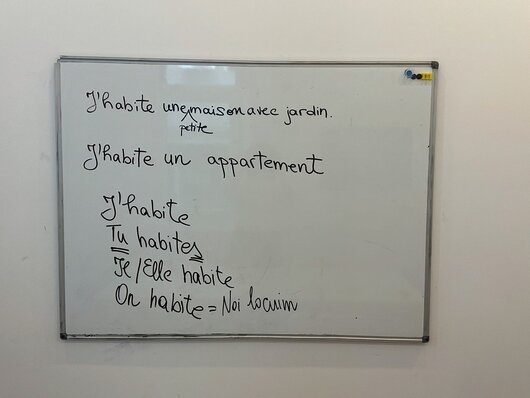 J'habite une maison avec jardin.
petite
J'habite un appartement
J'habite
Tu habites
Il/Elle habite
On habite = Noi locuim